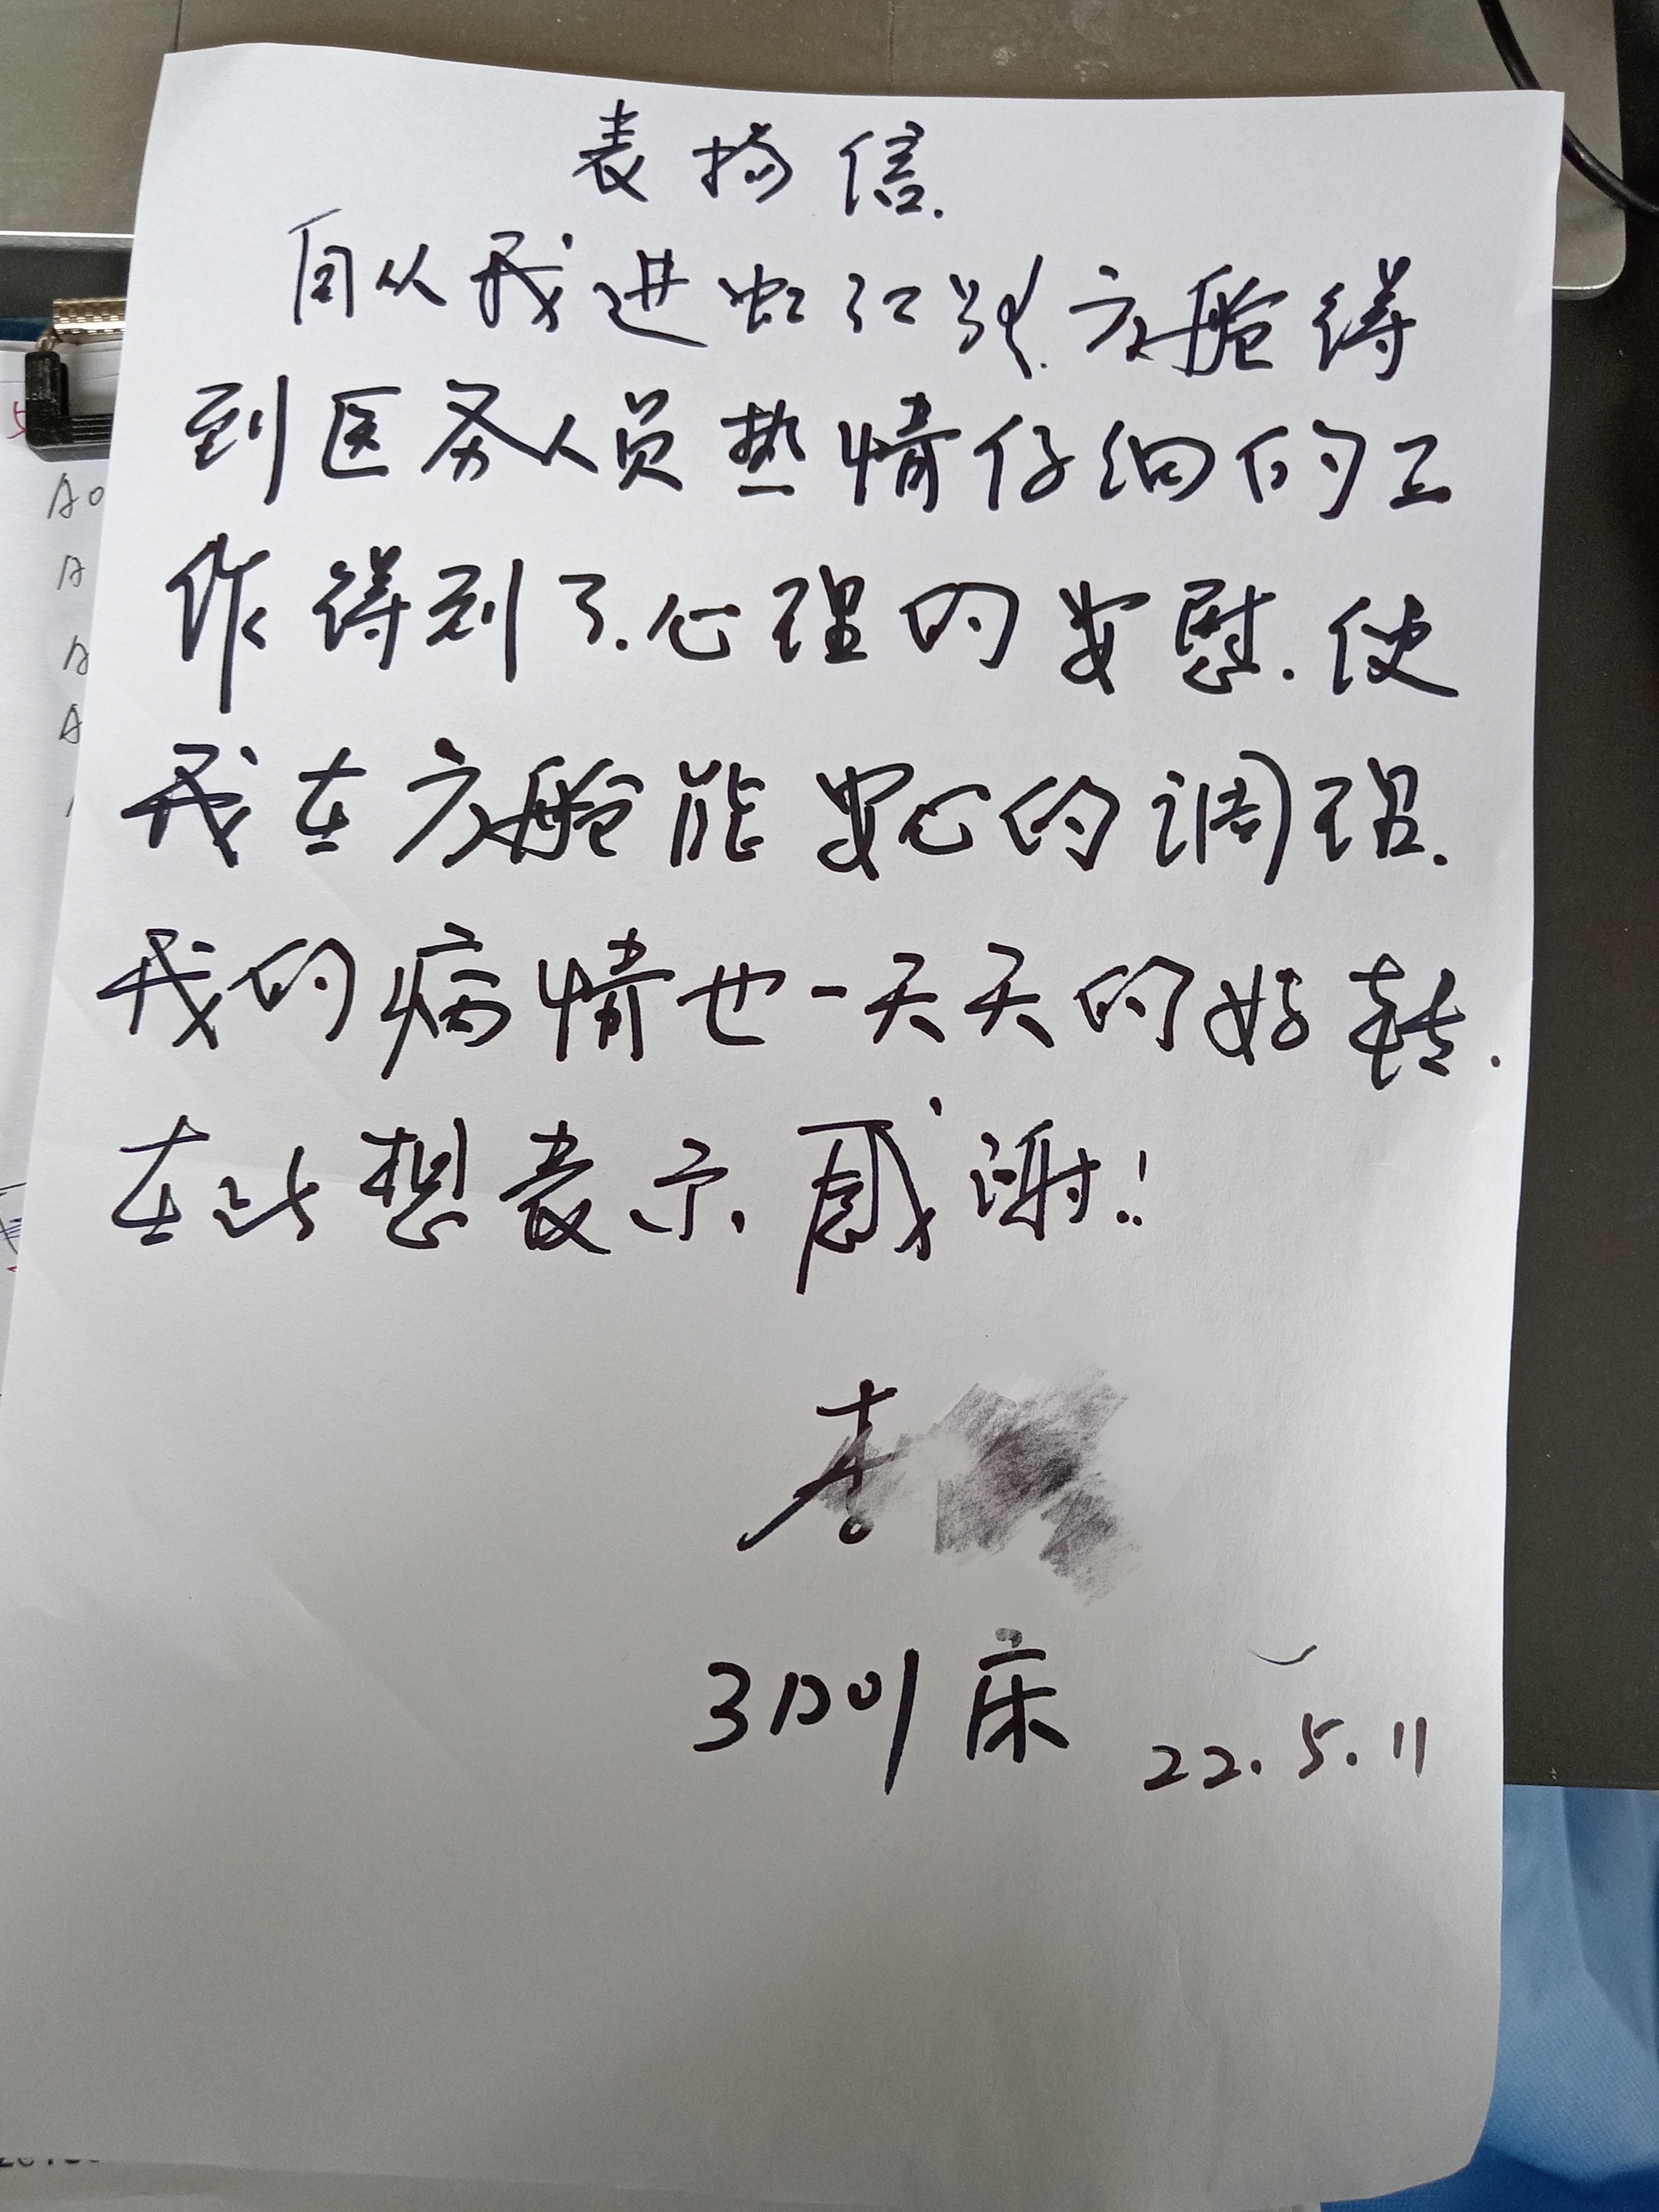 表扬信.
自从我进虹江方舱得
到医务人员热情仔细的工
作得到了.心理的安慰.使
我在方舱能安心的调理.
我的病情也一天天的好转.
在此想表示.感谢!
李
3D01床
22.5.11
A0
A
A
A